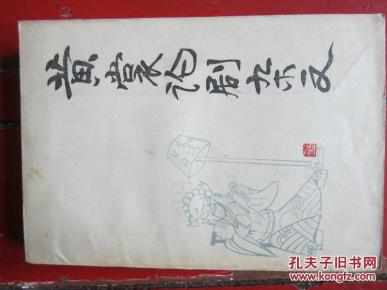 黄裳论剧杂文
孔夫子旧书网